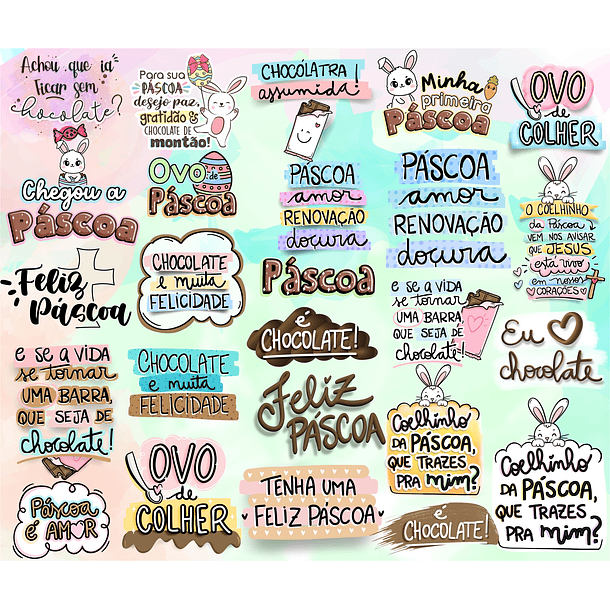 Achou que ia
ficar sem
chocolate?
Para sua
PÁSCOA
desejo paz,
gratidão &
CHOCOLATE DE
montão!
CHOCÓLATRA
assumida!
Minha
primeira
Páscoa
OVO
de
COLHER
Chegou a
Páscoa
Ovo de
Páscoa
PÁSCOA
amor
RENOVAÇÃO
doçura
PÁSCOA
amor
RENOVAÇÃO
doçura
O COELHINHO
da Páscoa
VEM NOS AVISAR
QUE JESUS
está vivo
em nossos
CORAÇÕES
Feliz
Páscoa
CHOCOLATE
e muita
FELICIDADE
Páscoa
E SE A VIDA
se tornar
UMA BARRA,
QUE SEJA DE
chocolate!
é
CHOCOLATE!
Eu
chocolate
E SE A VIDA
se tornar
UMA BARRA,
QUE SEJA DE
chocolate!
CHOCOLATE
e muita
FELICIDADE
Feliz
PÁSCOA
Coelhinho
DA PÁSCOA,
QUE TRAZES
PRA mim?
Coelhinho
DA PÁSCOA,
QUE TRAZES
PRA mim?
OVO
de
COLHER
TENHA UMA
FELIZ PÁSCOA
Páscoa
É AMOR
é
CHOCOLATE!